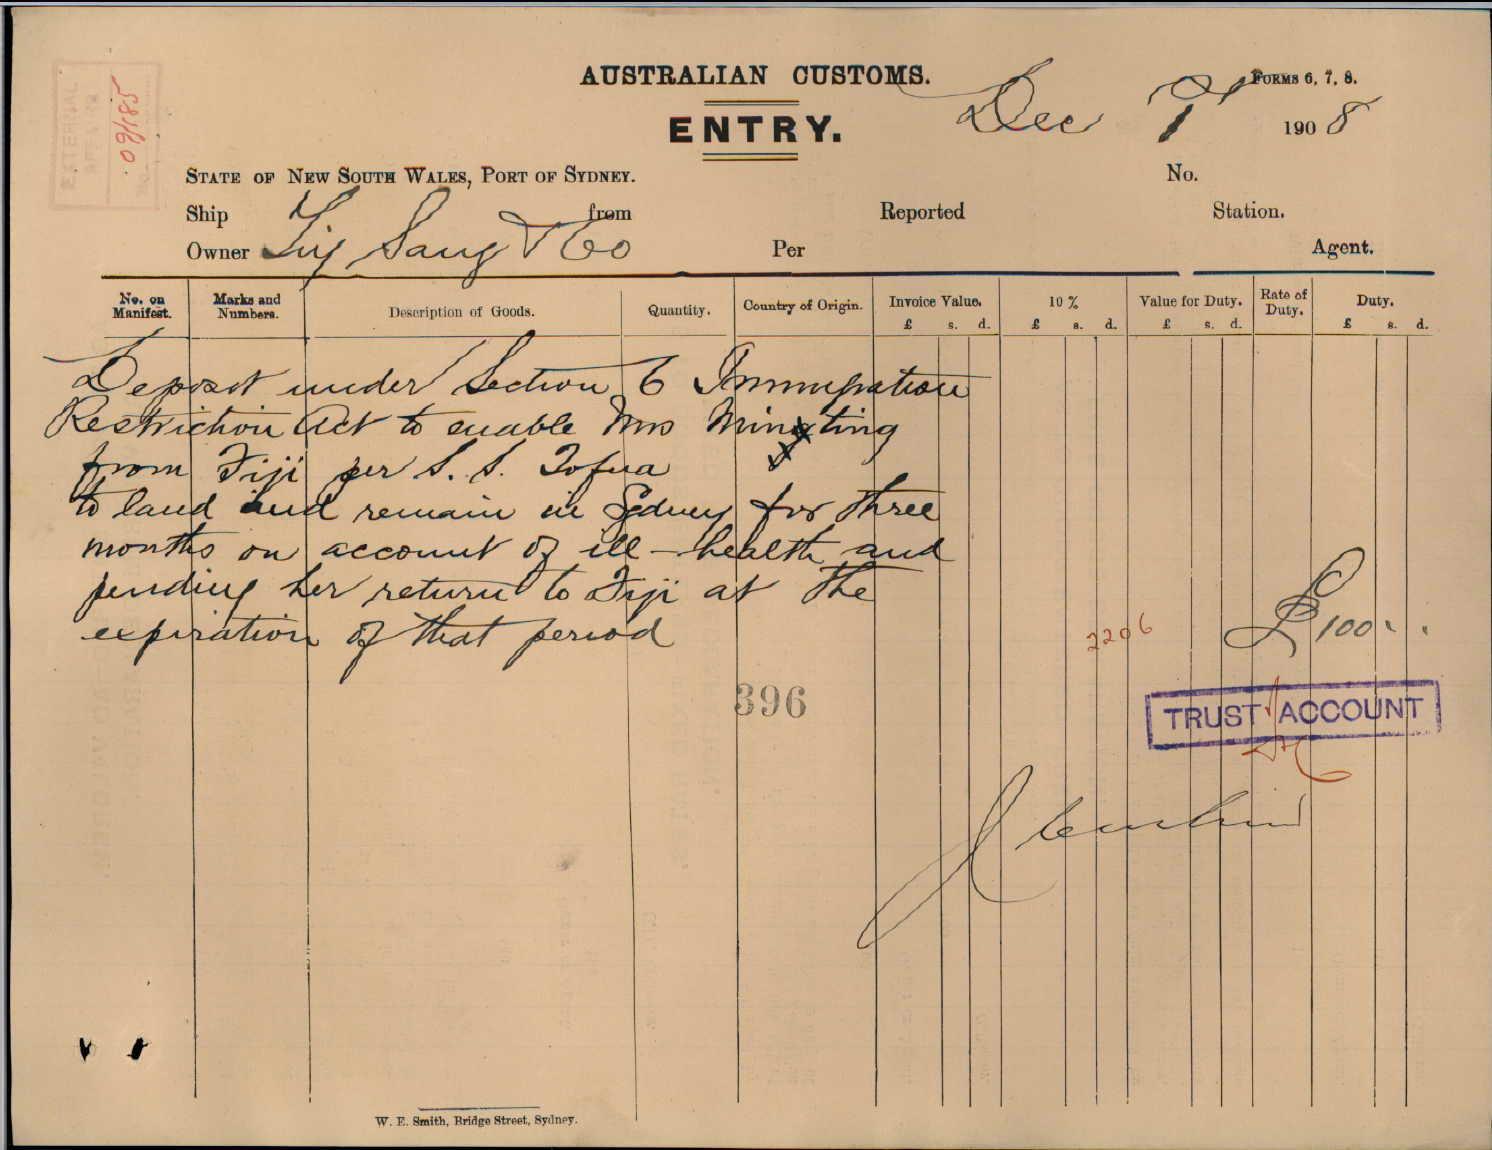 AUSTRALIAN CUSTOMS.
FORMS 6, 7, 8.
ENTRY.
Dec 7 1908
EXTERNAL
AFFAIRS
No.
09/185
STATE OF NEW SOUTH WALES, PORT OF SYDNEY.
No.
Ship from Reported Station.
Owner Sang & Co Per Agent.
No. on Manifest. Marks and Numbers. Description of Goods. Quantity. Country of Origin. Invoice Value. 10 % Value for Duty. Rate of Duty. Duty.
£ s. d. £ s. d. £ s. d. £ s. d.
Deposit under Section 6 Immigration
Restriction Act to enable Mrs Ming ting
from Fiji per S. S. Tofua
to land and remain in Sydney for three
months on account of ill-health and
pending her return to Fiji at the
expiration of that period
2206
£100
396
TRUST ACCOUNT
W. E. Smith, Bridge Street, Sydney.